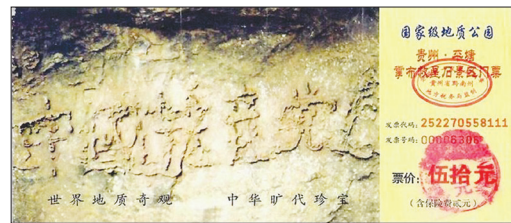 中國共产党
世界地质奇观 中华旷代珍宝
国家级地质公园
贵州·平塘
掌布救星石景区门票
贵州省黔南州
发票代码: 252270558111
发票号码: 00006306
票价: 伍拾元
(含保险费贰元)